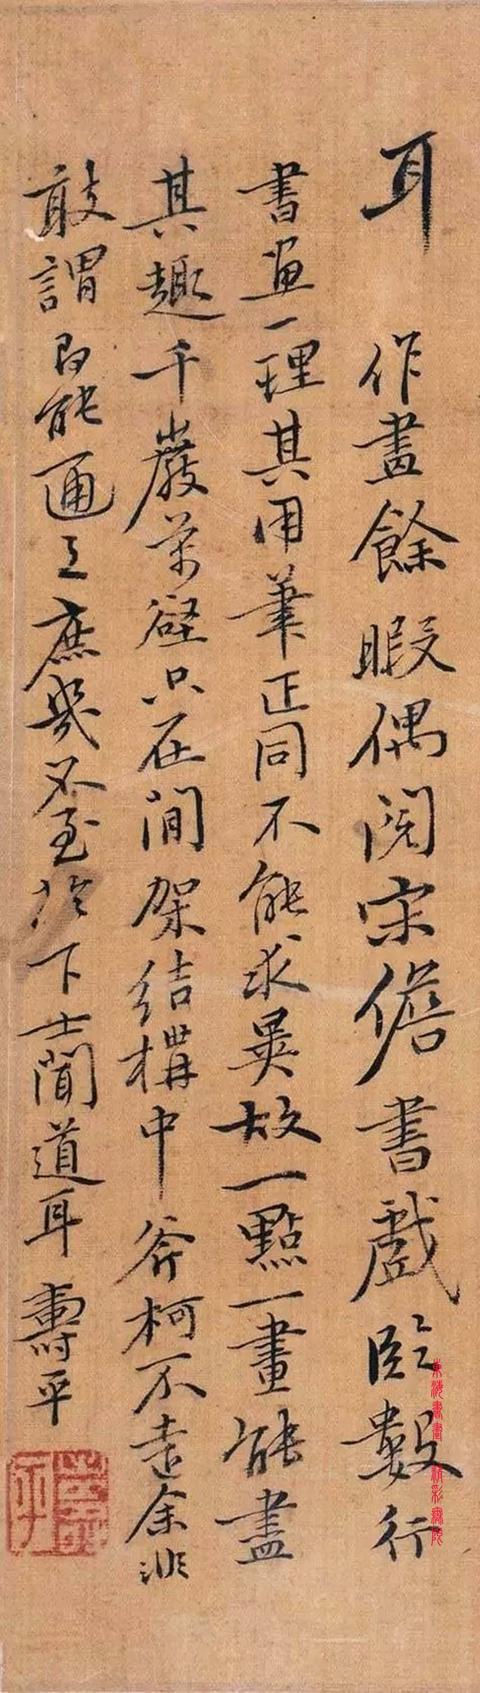 耳 作畫餘暇偶閱宋儋書戲臨數行
書画一理其用筆正同不能求異故一點一畫能盡
其趣千巖萬壑只在間架結構中斧柯不遠余非
敢謂即能通之庶幾不至於下士聞道耳 壽平